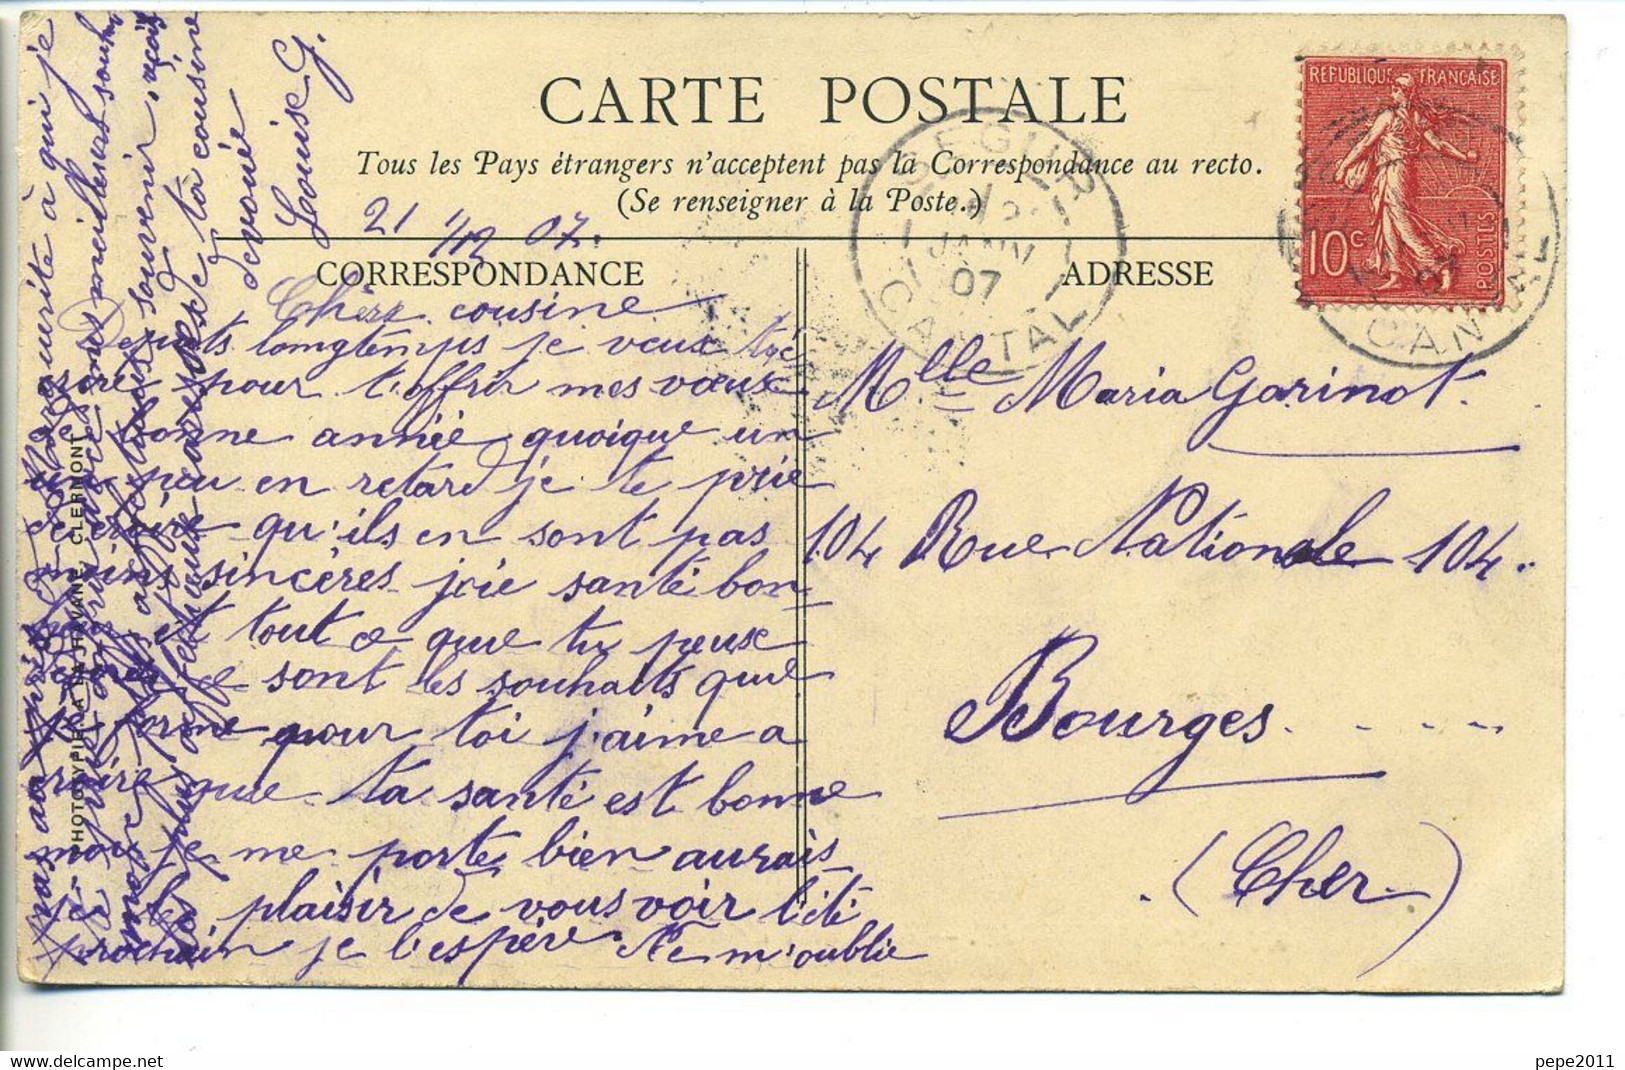 CARTE POSTALE
Tous les Pays étrangers n'acceptent pas la Correspondance au recto.
(Se renseigner à la Poste.)
21 1/12 07.
CORRESPONDANCE
ADRESSE
REPUBLIQUE FRANÇAISE
10 c
POSTES
SEGUR
JANV
07
CANTAL
CANTAL
Chère cousine
Depuis longtemps je veux t'éc
pour t'offrir mes vœux
bonne année quoique un
peu en retard je te prie
de croire qu'ils en sont pas
moins sincères joie santé bon
et tout ce que tu peux
ce sont les souhaits que
je forme pour toi j'aime a
croire que ta santé est bonne
moi je me porte bien aurais
je le plaisir de vous voir l'été
prochain je l'espère Ne m'oublie
pas auprès de Marguerite à qui je
meilleurs
souvenir, reçois
ta cousine
dévoué
Louise G.
Mlle Maria Garinot.
104 Rue Nationale 104.
Bourges
(Cher)
PHOTOTYPIE A LA HAVANE, CLERMONT
pepe2011